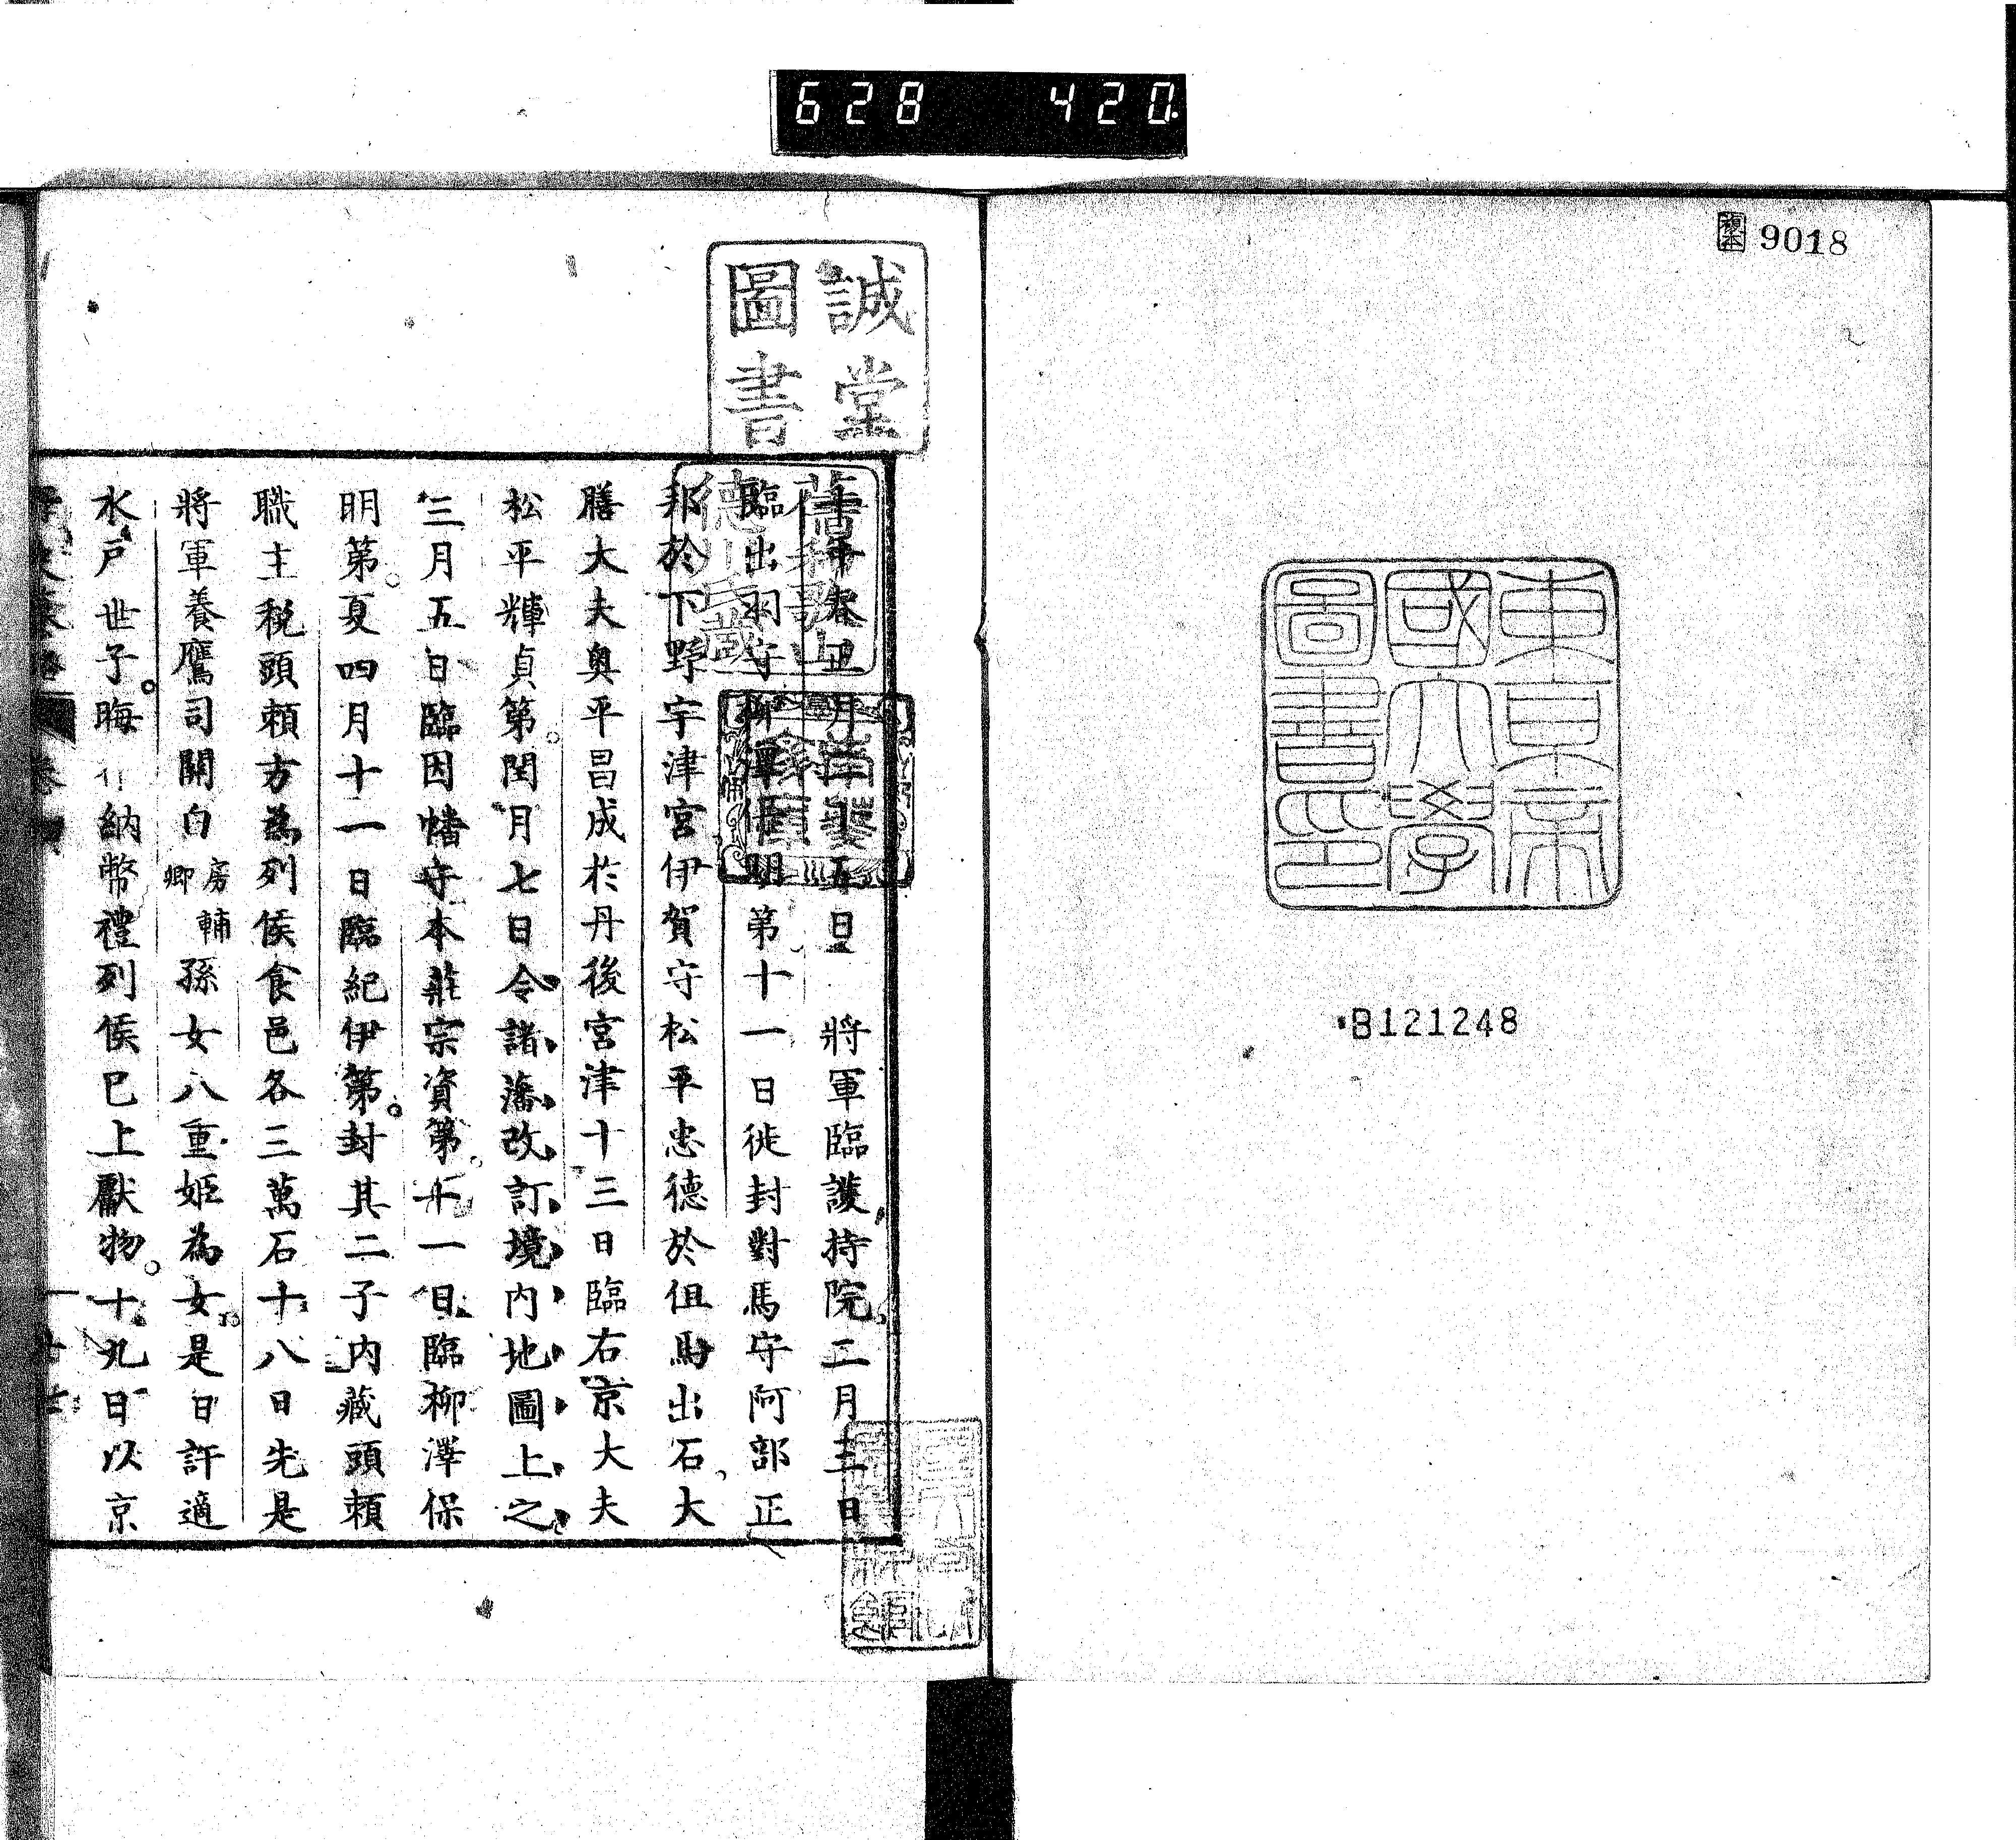 628 420.
複本 9018
東京帝
國大學
圖書印
B121248
誠堂
圖書
舊和歌山
德川氏藏
南葵
文庫
十年春正月廿五日 將軍臨護持院二月三日
臨出羽守柳澤保明第十一日徙封對馬守阿部正
邦於下野宇津宮伊賀守松平忠德於但馬出石大
膳大夫奧平昌成於丹後宮津十三日臨右京大夫
松平輝貞第閏月七日令諸藩改訂境內地圖上之
三月五日臨因幡守本莊宗資第十一日臨柳澤保
明第夏四月十一日臨紀伊第封其二子內藏頭賴
職主税頭賴方為列侯食邑各三萬石十八日先是
將軍養鷹司關白房輔卿孫女八重姬為女是日許適
水戶世子晦日納幣禮列侯已上獻物十九日以京